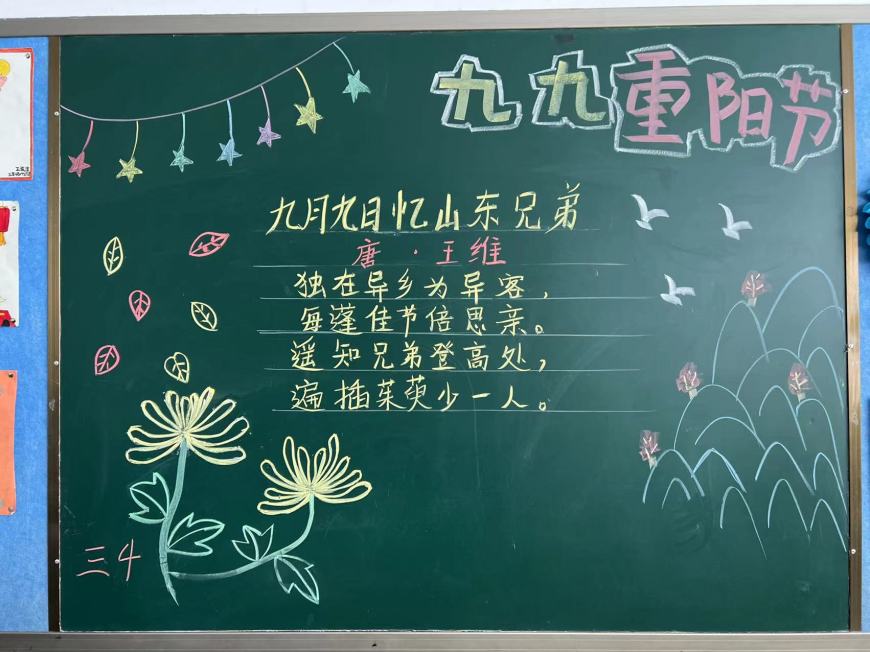 九九重阳节
九月九日忆山东兄弟
唐·王维
独在异乡为异客，
每逢佳节倍思亲。
遥知兄弟登高处，
遍插茱萸少一人。
三4